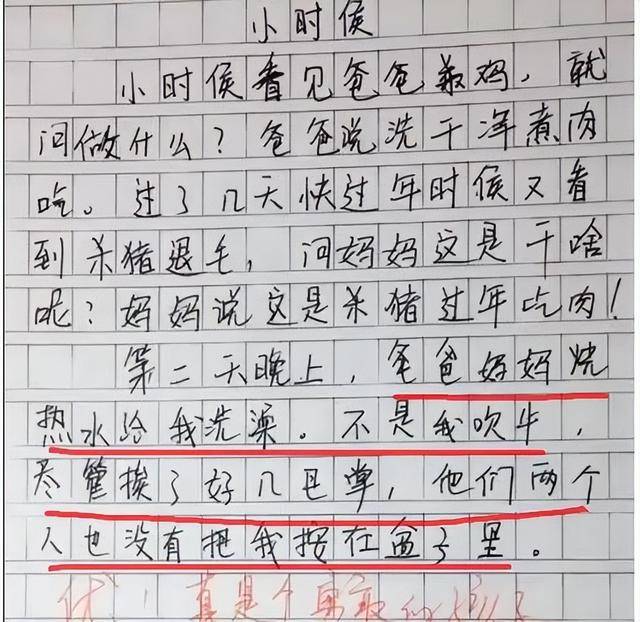 小时侯
小时侯看见爸爸,就
问做什么?爸爸说洗干净煮肉
吃。过了几天快过年时侯又看
到杀猪退毛,问妈妈这是干啥
呢?妈妈说这是杀猪过年吃肉!
第二天晚上,爸爸妈妈烧
热水给我洗澡。不是我吹牛,
尽管挨了好几巴掌,他们两个
人也没有把我按在盆子里。
优!真是个勇敢的孩子